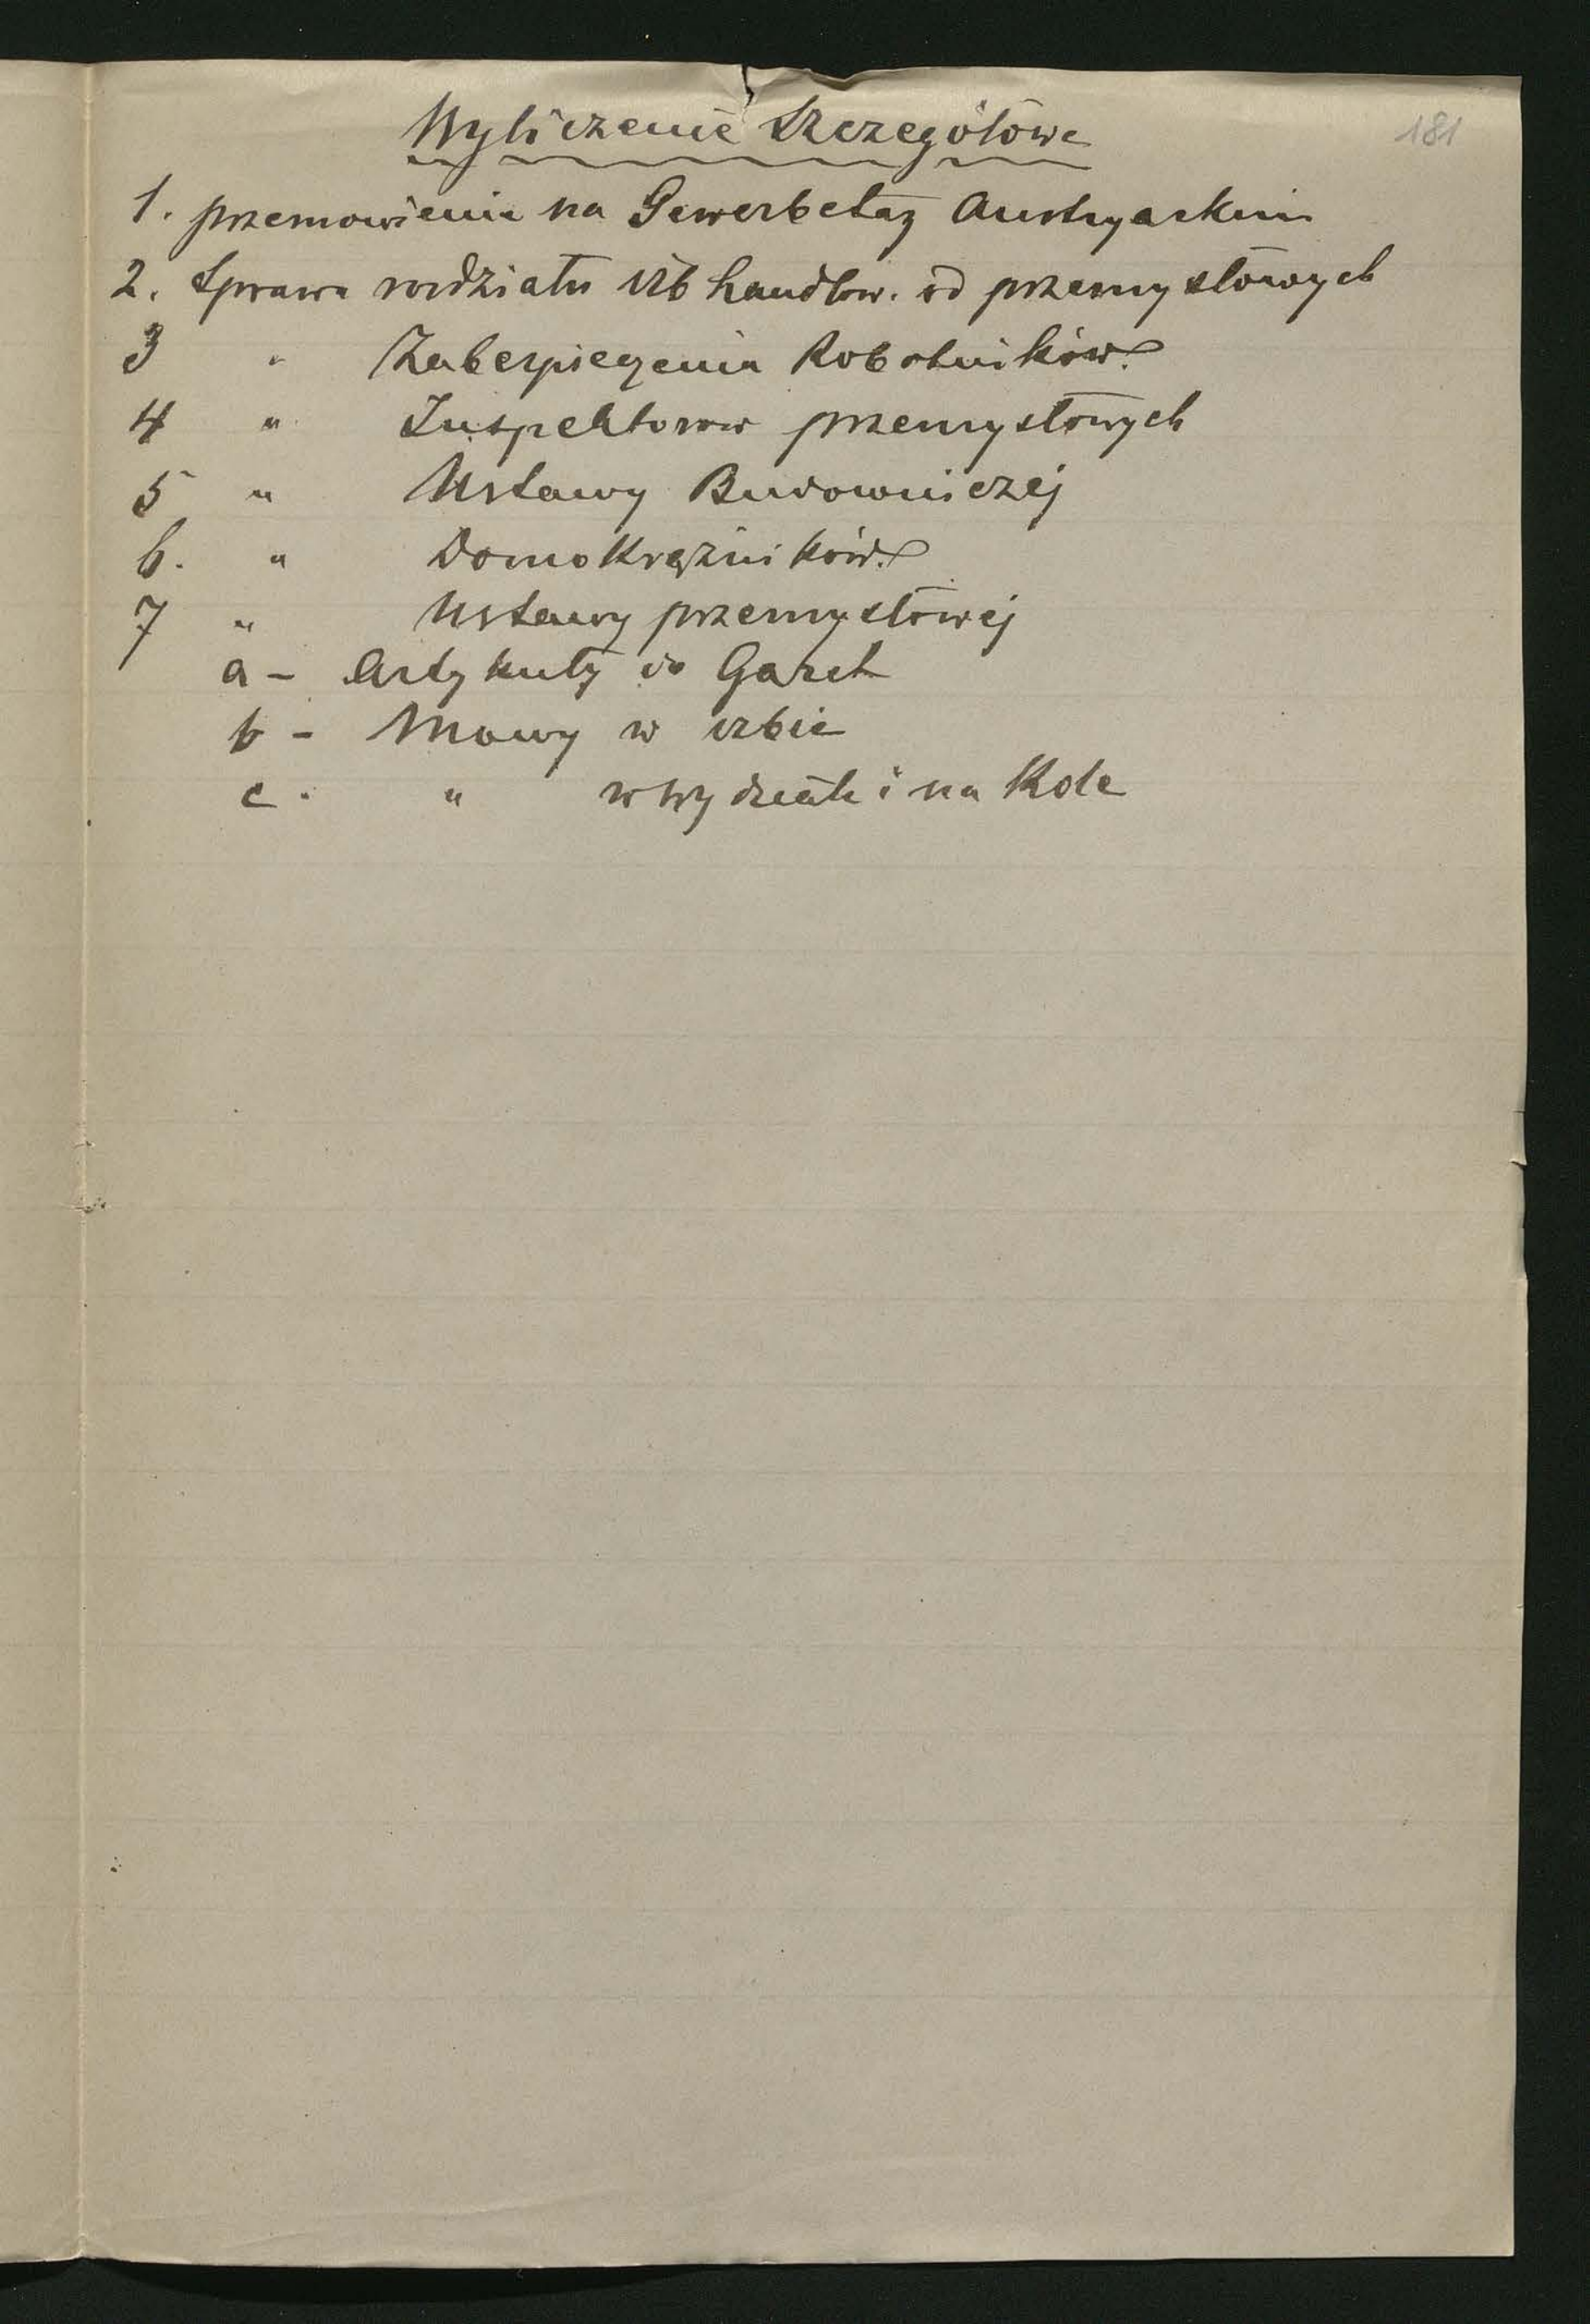 181
Wyliczenie Szczegółowe
1. przemowienia na Gewerbetag Austryackim
2. Sprawa rozdziału izb handlow. od przemysłowych
3 " Zabezpieczenia Robotników.
4 " Inspektorow przemysłowych
5 " Ustawy Budowniczej
6. " Domokrążników.
7 " Ustawy przemysłowej
a - Artykuły do Gazet
b - Mowy w izbie
c. " w wydziale i na Kole